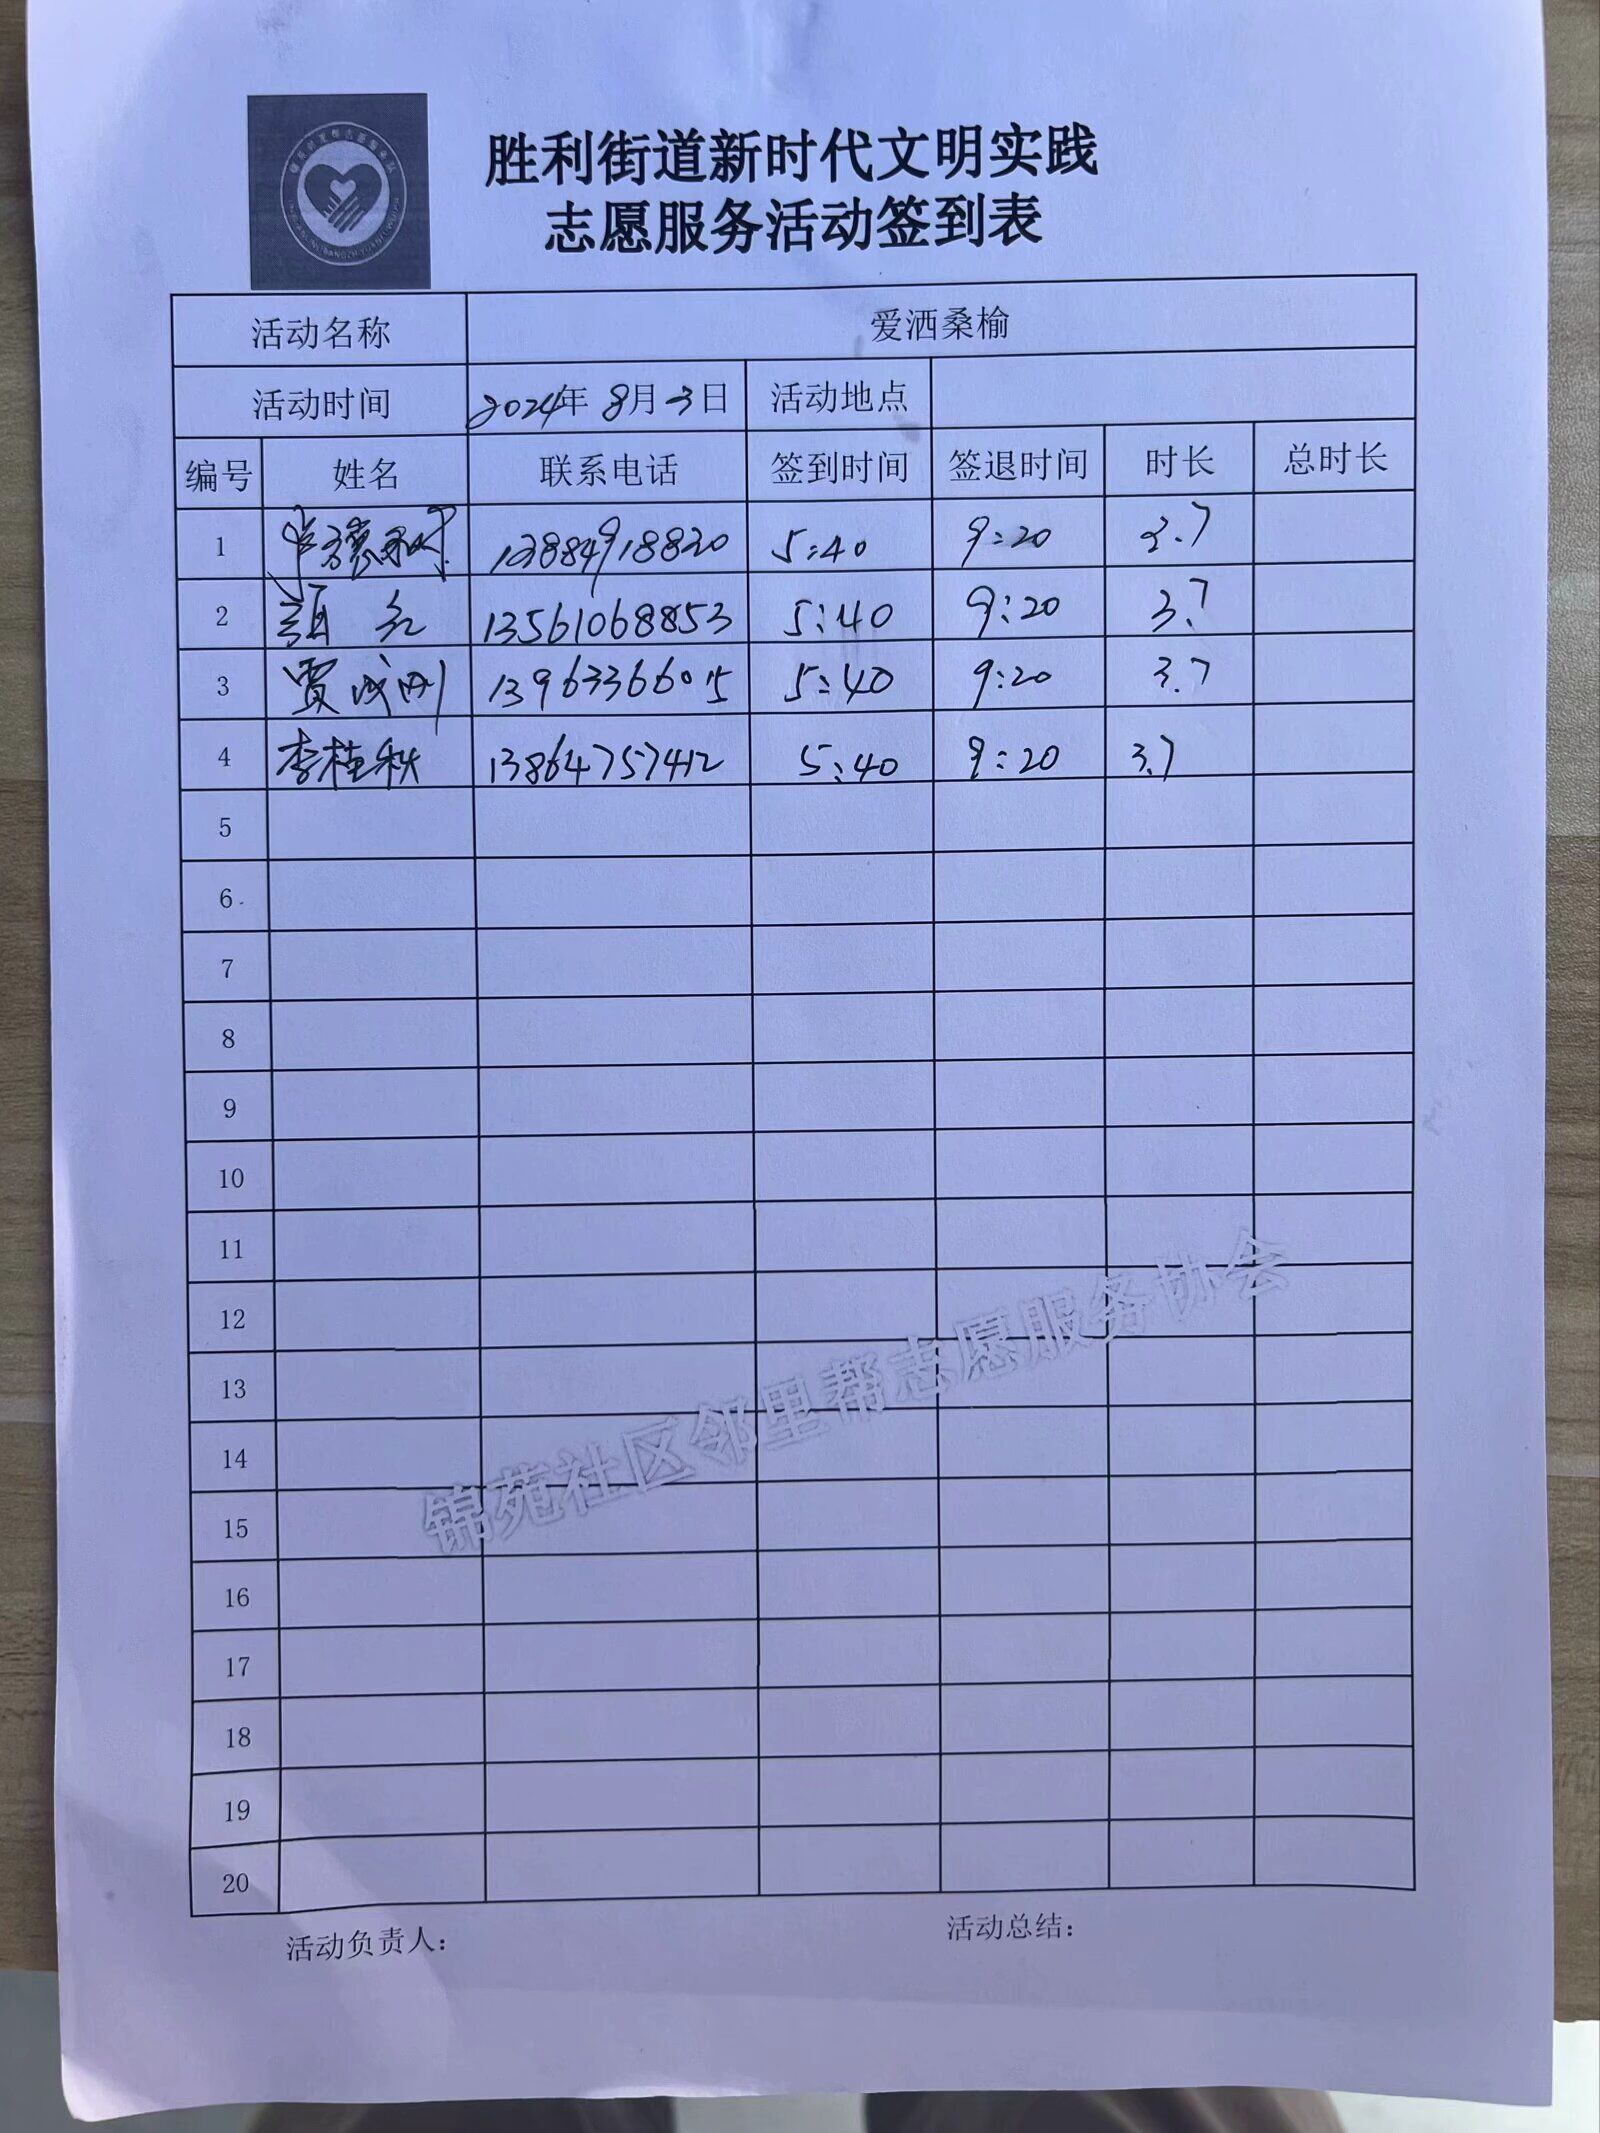 胜利街道新时代文明实践
志愿服务活动签到表
活动名称 爱洒桑榆
活动时间 2024年 8月3日 活动地点
编号 姓名 联系电话 签到时间 签退时间 时长 总时长
1 13884918820 5:40 9:20 3.7
2 13561068853 5:40 9:20 3.7
3 贾成刚 13963366015 5:40 9:20 3.7
4 李桂秋 13864757412 5:40 9:20 3.7
5
6
7
8
9
10
11
12
13
14
15
16
17
18
19
20
锦苑社区邻里帮志愿服务协会
活动负责人： 活动总结：